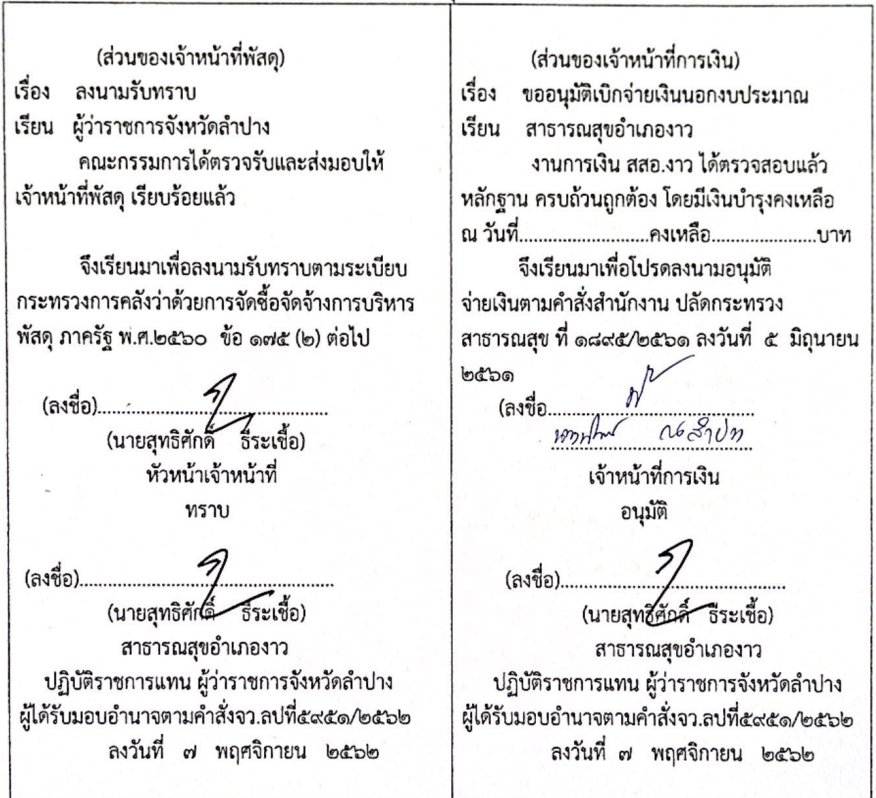 (ส่วนของเจ้าหน้าที่พัสดุ)
เรื่อง ลงนามรับทราบ
เรียน ผู้ว่าราชการจังหวัดลำปาง
คณะกรรมการได้ตรวจรับและส่งมอบให้
เจ้าหน้าที่พัสดุ เรียบร้อยแล้ว
จึงเรียนมาเพื่อลงนามรับทราบตามระเบียบ
กระทรวงการคลังว่าด้วยการจัดซื้อจัดจ้างการบริหาร
พัสดุ ภาครัฐ พ.ศ.๒๕๖๐ ข้อ ๑๗๕ (๒) ต่อไป
(ลงชื่อ)........................................
(นายสุทธิศักดิ์ ธีระเชื้อ)
หัวหน้าเจ้าหน้าที่
ทราบ
(ลงชื่อ)............................................
(นายสุทธิศักดิ์ ธีระเชื้อ)
สาธารณสุขอำเภองาว
ปฏิบัติราชการแทน ผู้ว่าราชการจังหวัดลำปาง
ผู้ได้รับมอบอำนาจตามคำสั่งจว.ลปที่๕๙๕๑/๒๕๖๒
ลงวันที่ ๗ พฤศจิกายน ๒๕๖๒
(ส่วนของเจ้าหน้าที่การเงิน)
เรื่อง ขออนุมัติเบิกจ่ายเงินนอกงบประมาณ
เรียน สาธารณสุขอำเภองาว
งานการเงิน สสอ.งาว ได้ตรวจสอบแล้ว
หลักฐาน ครบถ้วนถูกต้อง โดยมีเงินบำรุงคงเหลือ
ณ วันที่.......................คงเหลือ...................บาท
จึงเรียนมาเพื่อโปรดลงนามอนุมัติ
จ่ายเงินตามคำสั่งสำนักงาน ปลัดกระทรวง
สาธารณสุข ที่ ๑๘๙๕/๒๕๖๑ ลงวันที่ ๕ มิถุนายน
๒๕๖๑
(ลงชื่อ....................................
ณ ลำปาง
เจ้าหน้าที่การเงิน
อนุมัติ
(ลงชื่อ)........................................
(นายสุทธิศักดิ์ ธีระเชื้อ)
สาธารณสุขอำเภองาว
ปฏิบัติราชการแทน ผู้ว่าราชการจังหวัดลำปาง
ผู้ได้รับมอบอำนาจตามคำสั่งจว.ลปที่๕๙๕๑/๒๕๖๒
ลงวันที่ ๗ พฤศจิกายน ๒๕๖๒